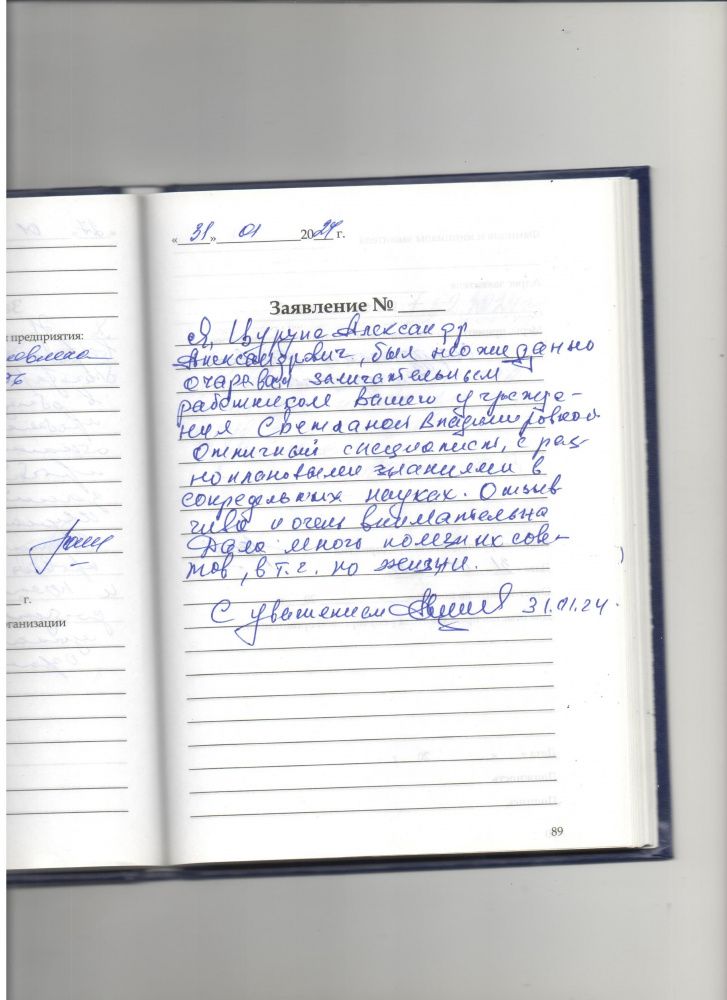 я предприятия:
г.
организации
« 31 » 01 2024 г.
Заявление №
Я, Цурупа Александр
Александрович, был неожиданно
очарован замечательным
работником Вашего учрежде-
ния Светланой Владимировной
Отличный специалист, с раз-
ноплановыми знаниями в
сопредельных науках. Отзыв
чива и очень внимательна
Дала много полезных сове-
тов, в т.ч. по жизни.
С уважением 31.01.24.
89